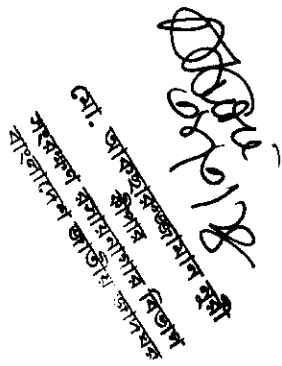 মো. আকছারুজ্জামান নূরী
কীপার
সংরক্ষণ রসায়নাগার বিভাগ
বাংলাদেশ জাতীয় জাদুঘর